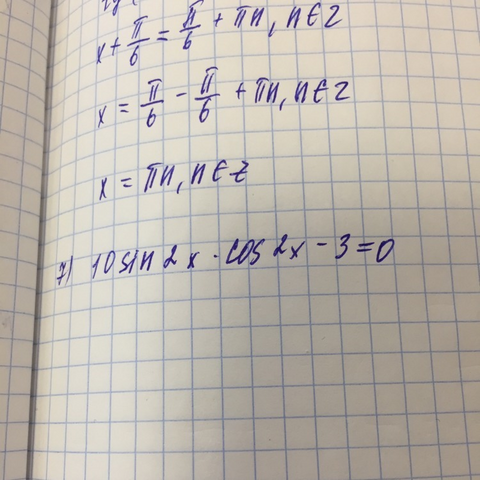 x + π/6 = π/6 + πn, n ∈ Z
x = π/6 - π/6 + πn, n ∈ Z
x = πn, n ∈ Z
7) 10 sin 2x · cos 2x - 3 = 0